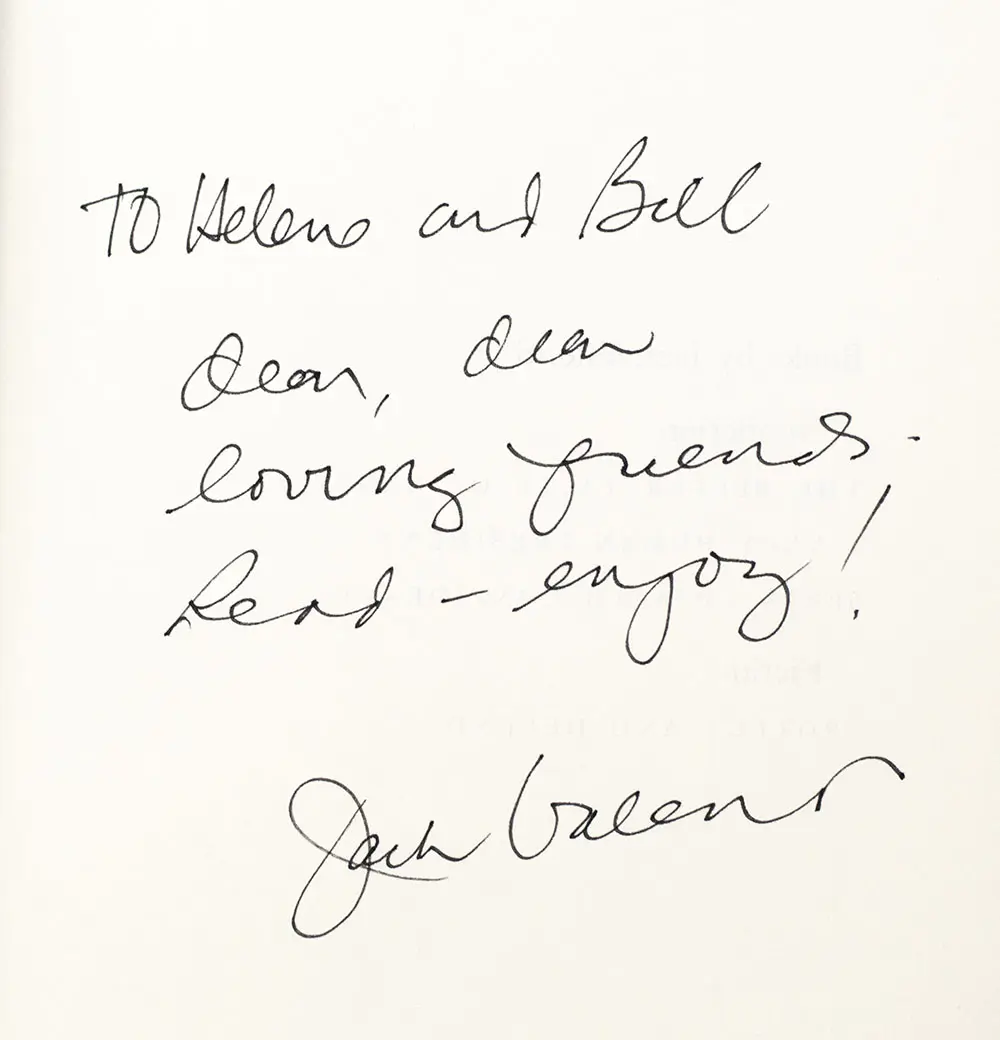 To Helene and Bill
dear, dear
loving friends.
Read – enjoy!
Jack Valenti